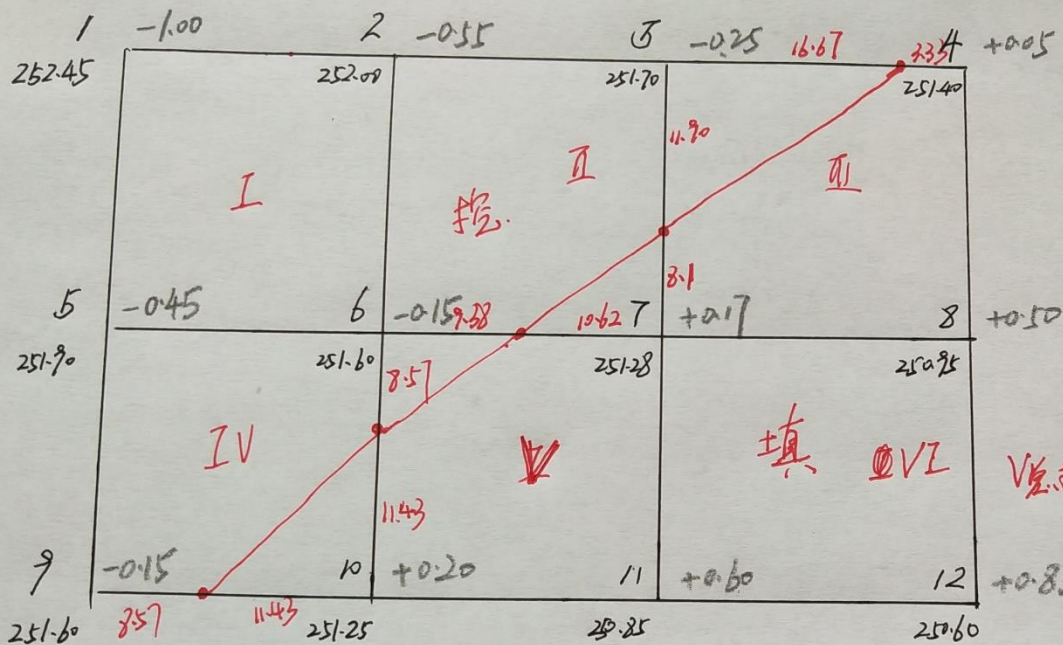 1 -1.00 2 -0.55 3 -0.25 16.67 3.33 4 +0.05
252.45 252.00 251.70 251.40
11.90
I II III
挖.
8.1
5 -0.45 6 -0.15 9.38 10.62 7 +0.17 8 +0.50
251.90 251.60 251.28 250.95
8.57
IV V 填 VI
11.43
9 -0.15 10 +0.20 11 +0.60 12
251.60 8.57 11.43 251.25 250.85 250.60